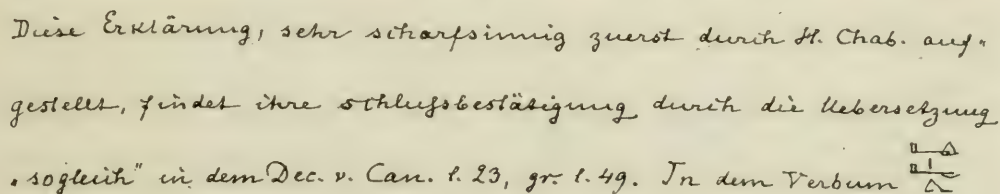 Diese Erklärung, sehr scharfsinnig zuerst durch H. Chab. auf-
gestellt, findet ihre schlußbestätigung durch die Uebersetzung
„sogleich" in dem Dec. v. Can. l. 23, gr. l. 49. In dem Verbum